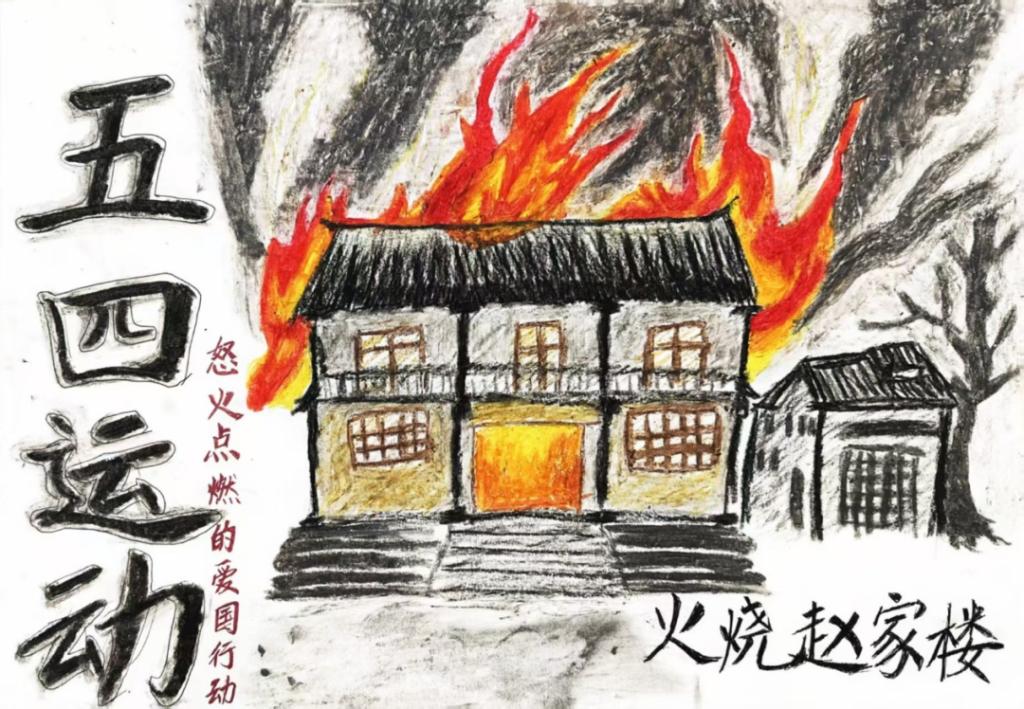 五四运动
怒火点燃的爱国行动
火烧赵家楼